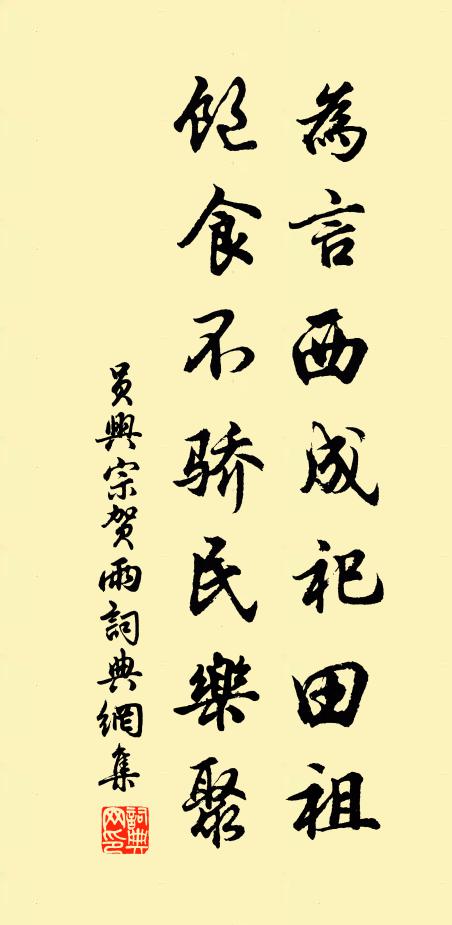 為言西成祀田祖
飽食不骄民樂聚
員興宗贺雨詞典網集
詞典網印